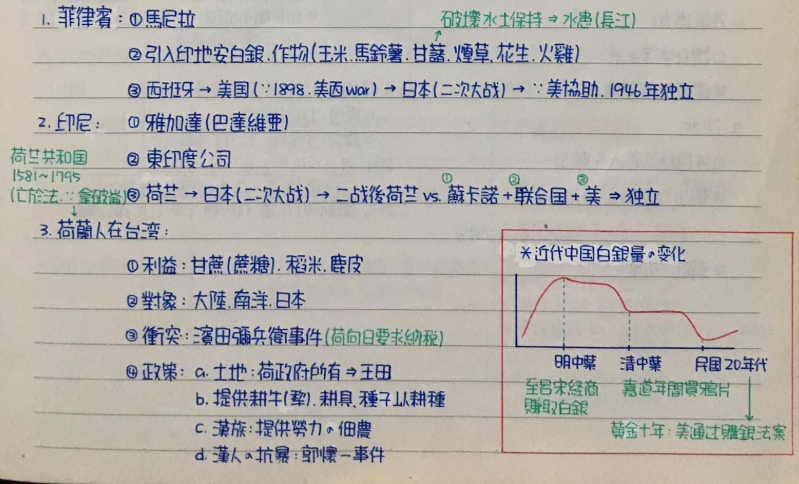 破壞水土保持⇒水患(長江)
1. 菲律賓:①馬尼拉
②引入印地安白銀.作物(玉米.馬鈴薯.甘藷.煙草.花生.火雞)
③西班牙→美国(∵1898.美西war)→日本(二次大战)→∵美協助.1946年独立
2. 印尼: ①雅加達(巴達維亞)
②東印度公司
荷兰共和国
1581~1795
(亡於法.∵拿破崙)
③荷兰→日本(二次大战)→二战後荷兰vs.①蘇卡諾+②联合国+③美⇒独立
3. 荷蘭人在台湾:
①利益:甘蔗(蔗糖).稻米.鹿皮
②對象:大陸.南洋.日本
③衝突:濱田彌兵衛事件(荷向日要求納稅)
④政策: a.土地:荷政府所有⇒王田
b.提供耕牛(犁).耕具.種子以耕種
c.漢族:提供勞力の佃農
d.漢人の抗暴:郭懷一事件
*近代中国白銀量の变化
明中葉 清中葉 民国20年代
至呂宋経商 嘉道年間買鴉片
賺取白銀
黄金十年:美通过購銀法案